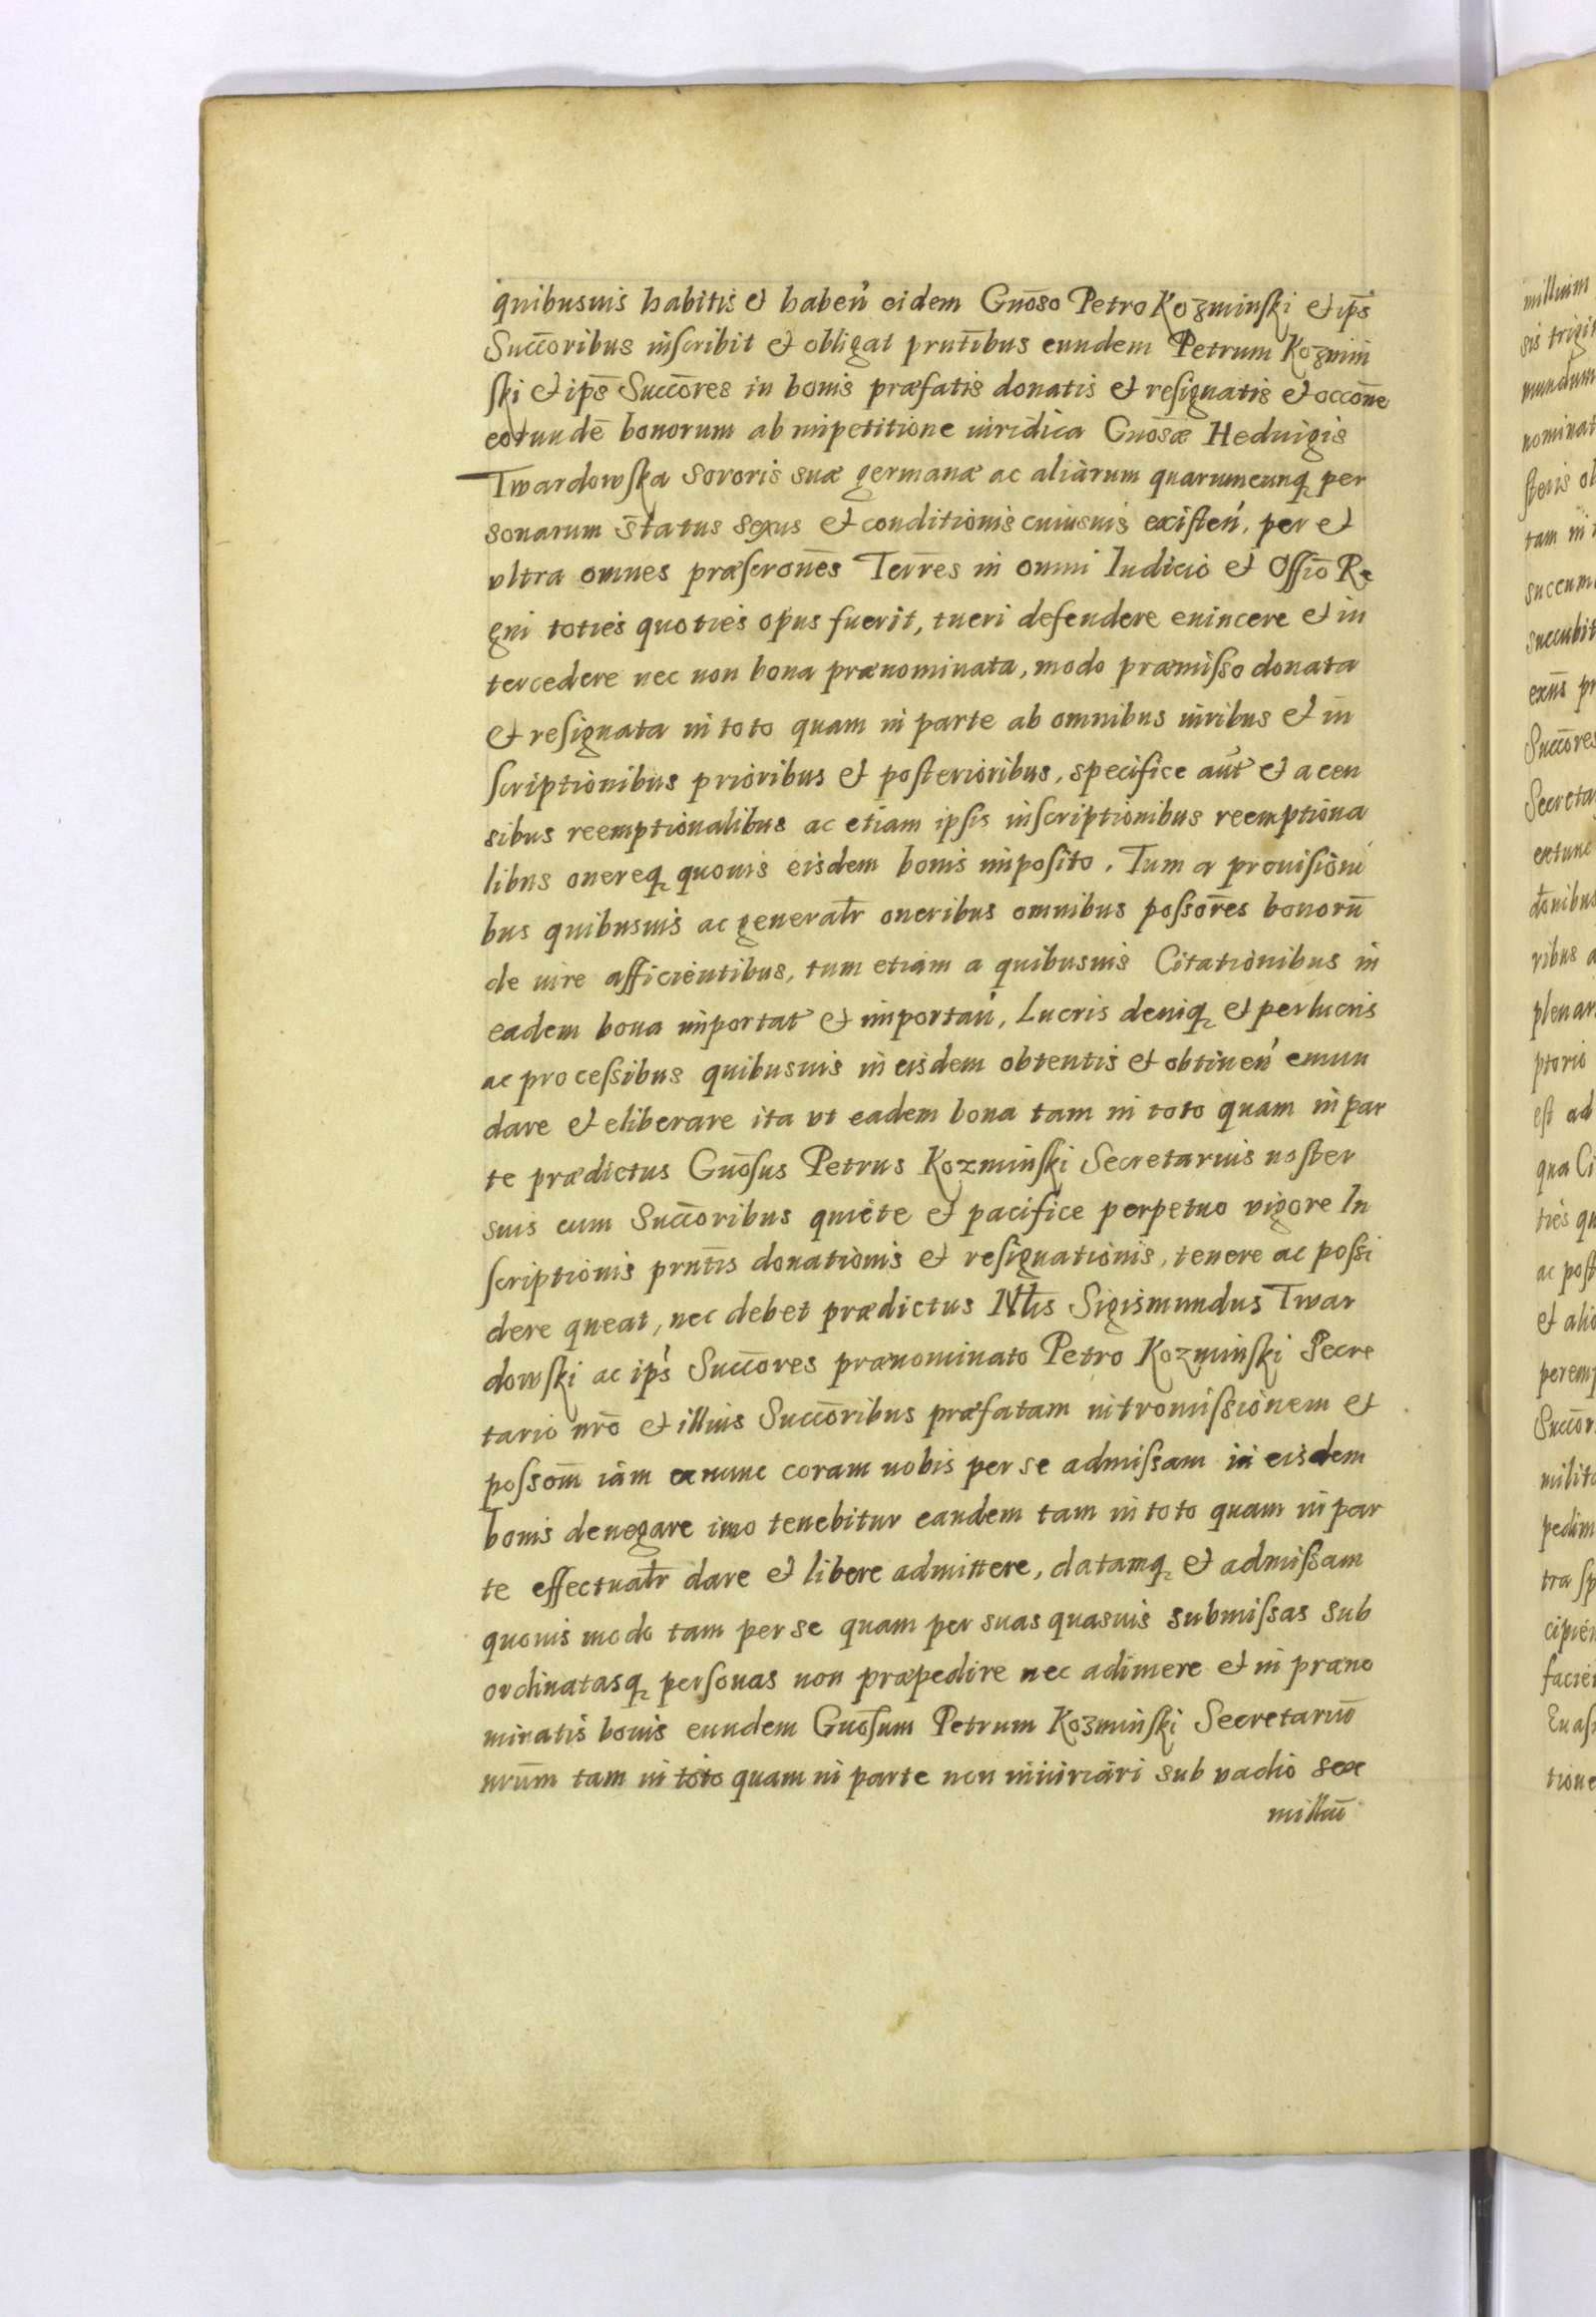 quibusuis habitis et habeń eidem Gnōso Petro Kozminſki et ip̄s
Succ̄oribus inſcribit et obligat prnt̄ibus eundem Petrum Kozmin
ſki et ip̄s Succ̄ores in bonis præfatis donatis et reſignatis et occōne
eorundē bonorum ab impetitione iuridica Gnōsæ Heduigis
Twardowſka sororis suæ germanæ ac aliarum quarumcunq per
sonarum status sexus et conditionis cuiusuis exiſteń, per et
vltra omnes præſcrōnes Terr̄es in omni Iudicio et Offīo Re
gni toties quoties opus fuerit, tueri defendere euincere et in
tercedere nec non bona prænominata, modo præmiſso donata
et reſignata in toto quam in parte ab omnibus iuribus et in
ſcriptionibus prioribus et poſterioribus, specifice aūt et a cen
sibus reemptionalibus ac etiam ipſis inſcriptionibus reemptiona
libus onereq quouis eisdem bonis impoſito. Tum a prouiſioni
bus quibusuis ac generatr̄ oneribus omnibus poſsor̄es bonorū
de iure afficientibus, tum etiam a quibusuis Citationibus in
eadem bona importat et importań, Lucris deniq et perlucris
ac proceſsibus quibusuis in eisdem obtentis et obtineń emun
dare et eliberare ita vt eadem bona tam in toto quam in par
te prædictus Gnōſus Petrus Kozminſki Secretarius noſter
suis cum Succ̄oribus quiete et pacifice perpetuo vigore In
ſcriptionis prnt̄is donationis et reſignationis, tenere ac poſsi
dere queat, nec debet prædictus Nbl̄is Sigismundus Twar
dowſki ac ip̄s Succ̄ores prænominato Petro Kozminſki Secre
tario nrō et illius Succ̄oribus præfatam intromiſsionem et
poſsom̄ iam ex nunc coram nobis per se admiſsam in eisdem
bonis denegare imo tenebitur eandem tam in toto quam in par
te effectuatr̄ dare et libere admittere, datamq et admiſsam
quouis modo tam per se quam per suas quasuis submiſsas sub
ordinatasq perſonas non præpedire nec adimere et in præno
minatis bonis eundem Gnōſum Petrum Kozminſki Secretariū
nrūm tam in toto quam in parte non iniuriari sub vadio sex
milliū